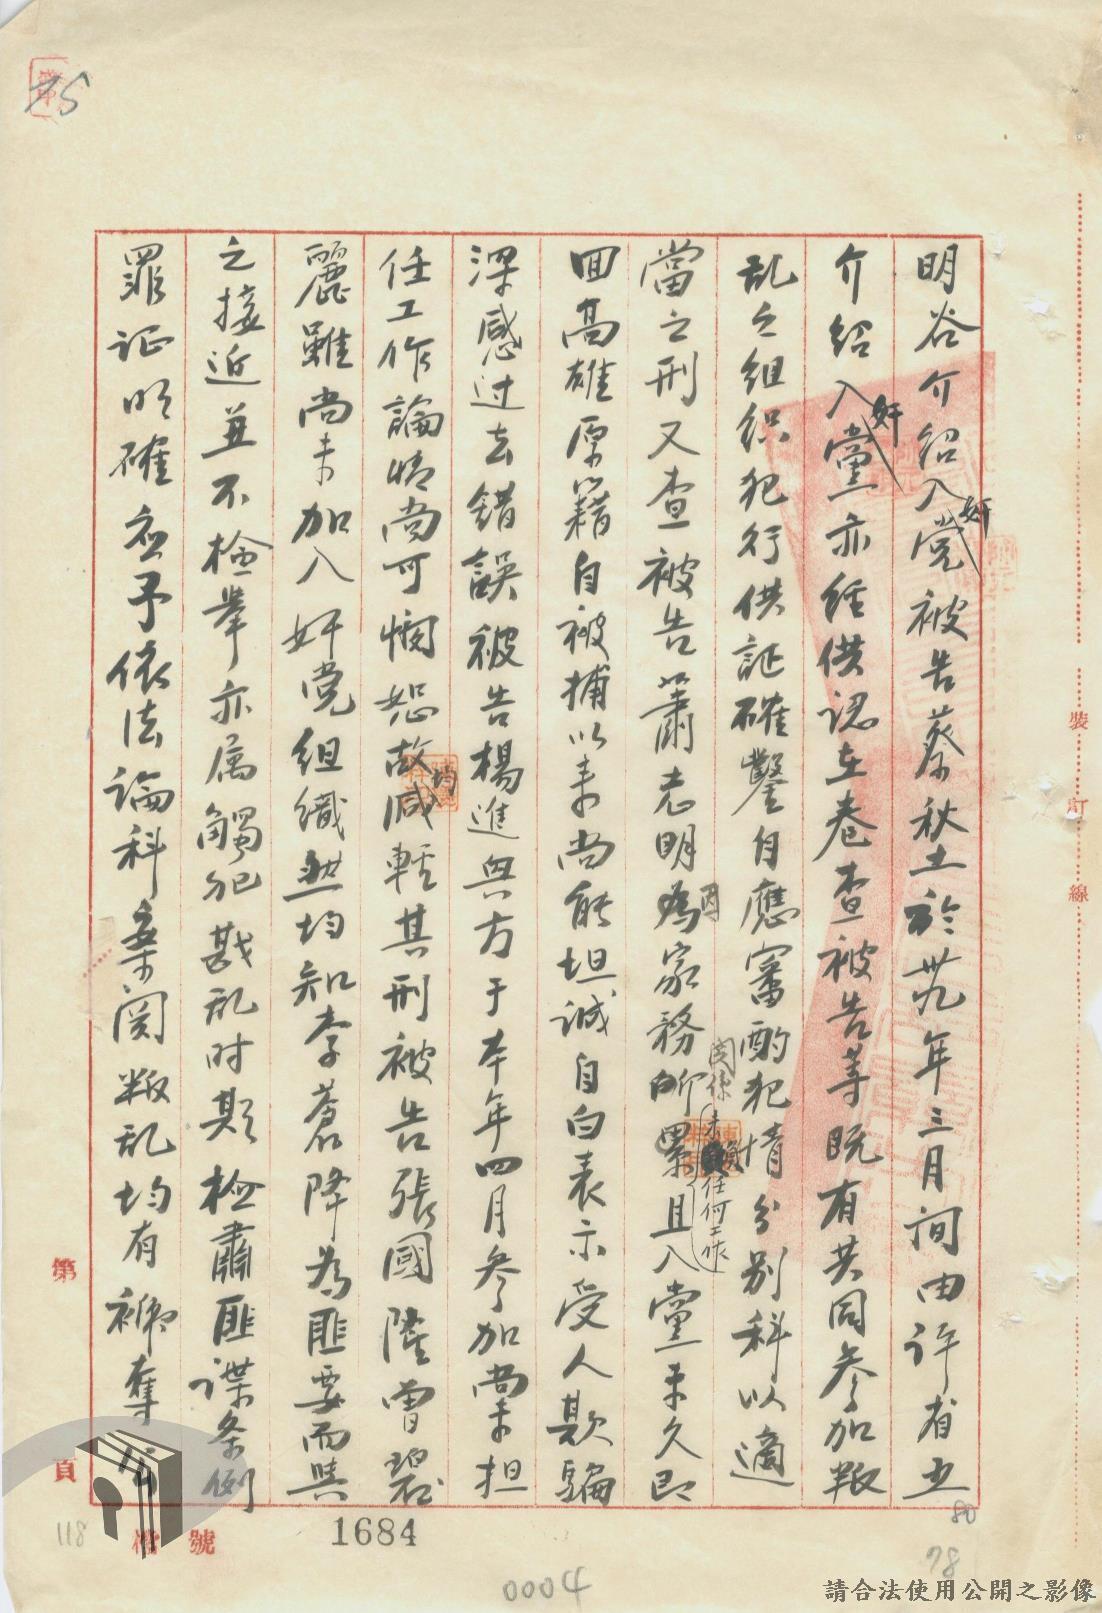 75
明谷介紹入奸党被告蔡秋土於卅九年三月間由許省五
介紹入奸黨亦經供認在卷查被告等既有共同參加叛
乱之組织犯行供証確鑿自應審酌犯情分別科以適
當之刑又查被告蕭志明因為家務所累且入黨未久即
関係未 任何工作
回高雄原籍自被捕以来尚能坦诚自白表示受人欺騙
深感过去錯誤被告楊進興方于本年四月參加尚未担
任工作論情尚可憫恕故均减輕其刑被告張國隆曾碧
麗雖尚未加入奸党組織然均知李蒼降為匪要而與
之接近並不檢举亦属觸犯戡乱时期檢肅匪諜条例
罪证明確应予依法論科案関叛乱均有褫奪公
裝
訂
線
第
頁
檔 號
1684
118
80
78
0004
請合法使用公開之影像